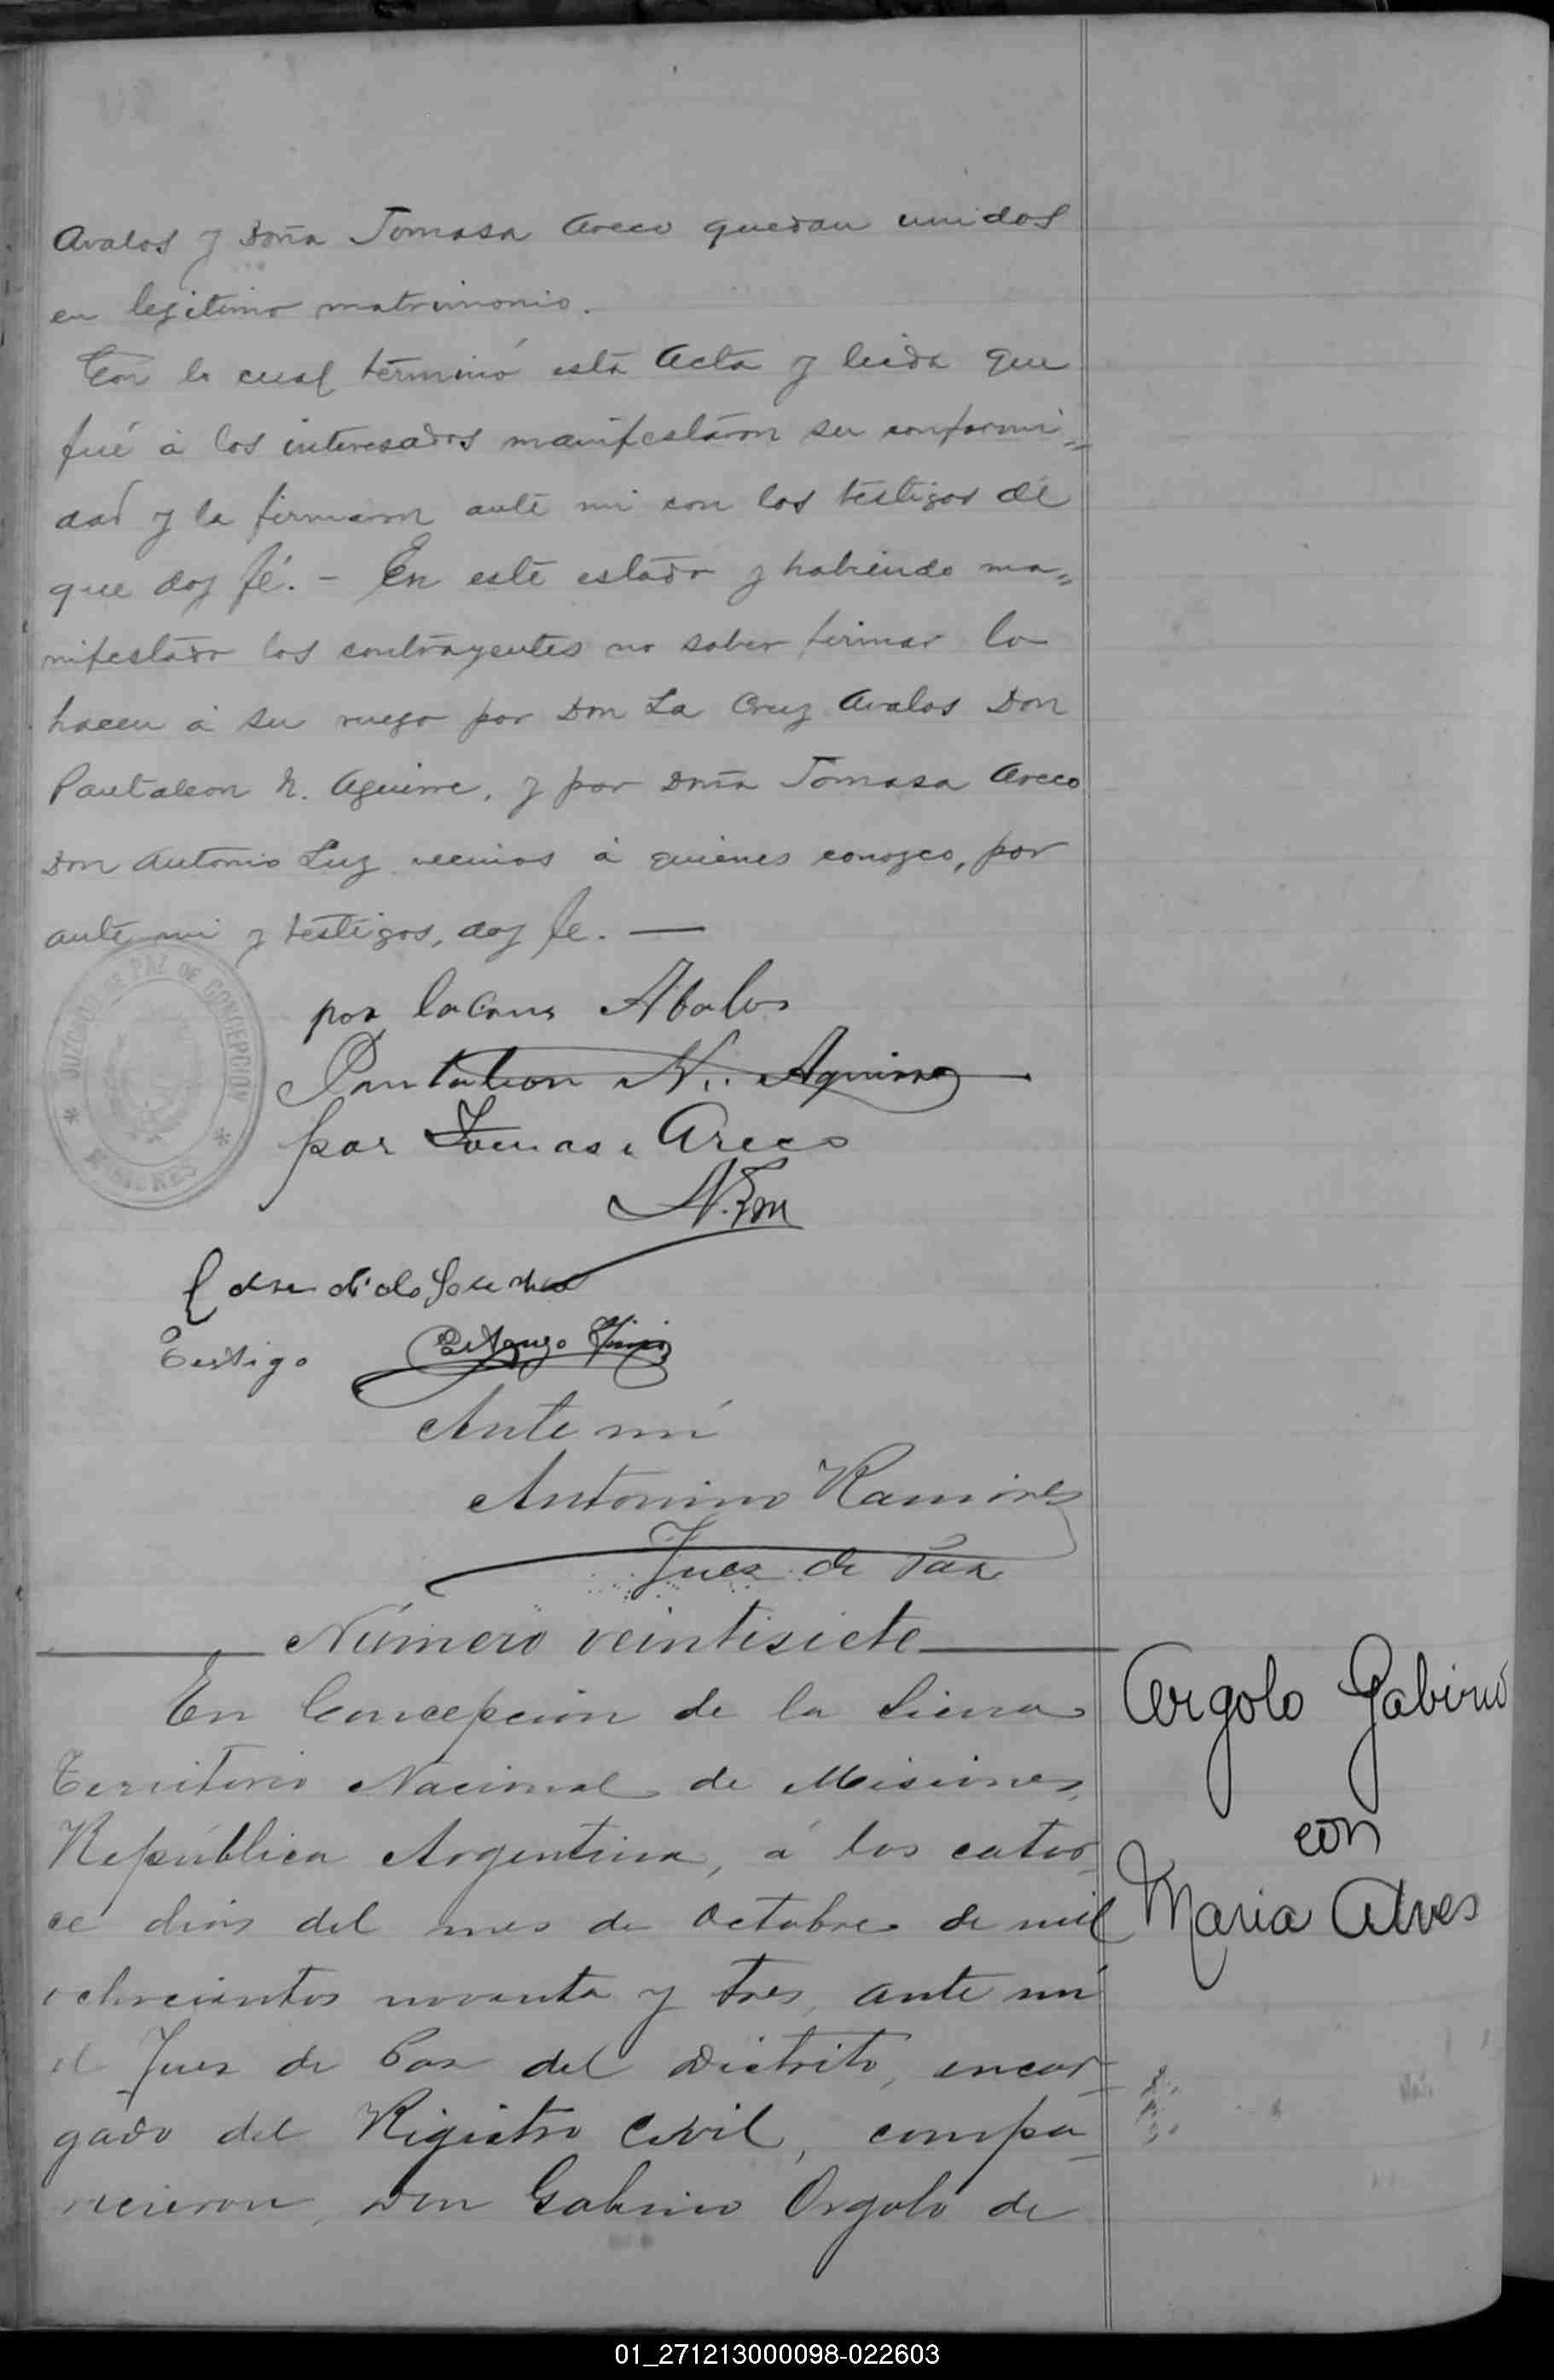 Avalos y Doña Tomasa Areco quedan unidos
en legitimo matrimonio.
Con lo cual terminó esta Acta y leida que
fué á los interesados manifestaron su conformi=
dad y la firmaron ante mi con los testigos de
que doy fé. - En este estado y habiendo ma=
nifestado los contrayentes no saber firmar lo
hacen á su ruego por Don La Cruz Avalos Don
Pantaleon N. Aguirre, y por Doña Tomasa Areco
Don Antonio Luz vecinos á quienes conozco, por
ante mi y testigos, doy fe. —
JUZGADO DE PAZ DE CONCEPCION
* MISIONES *
por lacrus Abalos
Pantaleon N. Aguirre
por Tomasa Areco
Testigo
Ante mí
Antonino Ramirez
Juez de Paz
Número veintisiete
En Concepcion de la Sierra
Territorio Nacional de Misiones,
República Argentina, á los cator
ce dias del mes de Octubre de mil
ochocientos noventa y tres, ante mí
el Juez de Paz del Distrito, encar
gado del Registro Civil, compa
recieron, Don Gabino Orgolo de
Argolo Gabino
con
Maria Alves
01_271213000098-022603